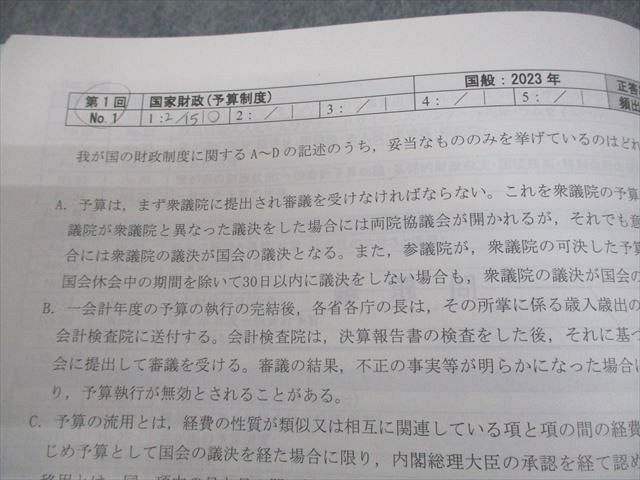 第1回 国家財政(予算制度) 国般:2023年 正答
No.1 1:2/15|○ 2: / | 3: / | 4: / | 5: / | 頻出
我が国の財政制度に関するA～Dの記述のうち，妥当なもののみを挙げているのはどれ
A. 予算は，まず衆議院に提出され審議を受けなければならない。これを衆議院の予算
議院が衆議院と異なった議決をした場合には両院協議会が開かれるが，それでも意
合には衆議院の議決が国会の議決となる。また，参議院が，衆議院の可決した予算
国会休会中の期間を除いて30日以内に議決をしない場合も，衆議院の議決が国会の
B. 一会計年度の予算の執行の完結後，各省各庁の長は，その所掌に係る歳入歳出の
会計検査院に送付する。会計検査院は，決算報告書の検査をした後，それに基づ
会に提出して審議を受ける。審議の結果，不正の事実等が明らかになった場合に
り，予算執行が無効とされることがある。
C. 予算の流用とは，経費の性質が類似又は相互に関連している項と項の間の経費
じめ予算として国会の議決を経た場合に限り，内閣総理大臣の承認を経て認め
移用とは，同一項内の目と目の間